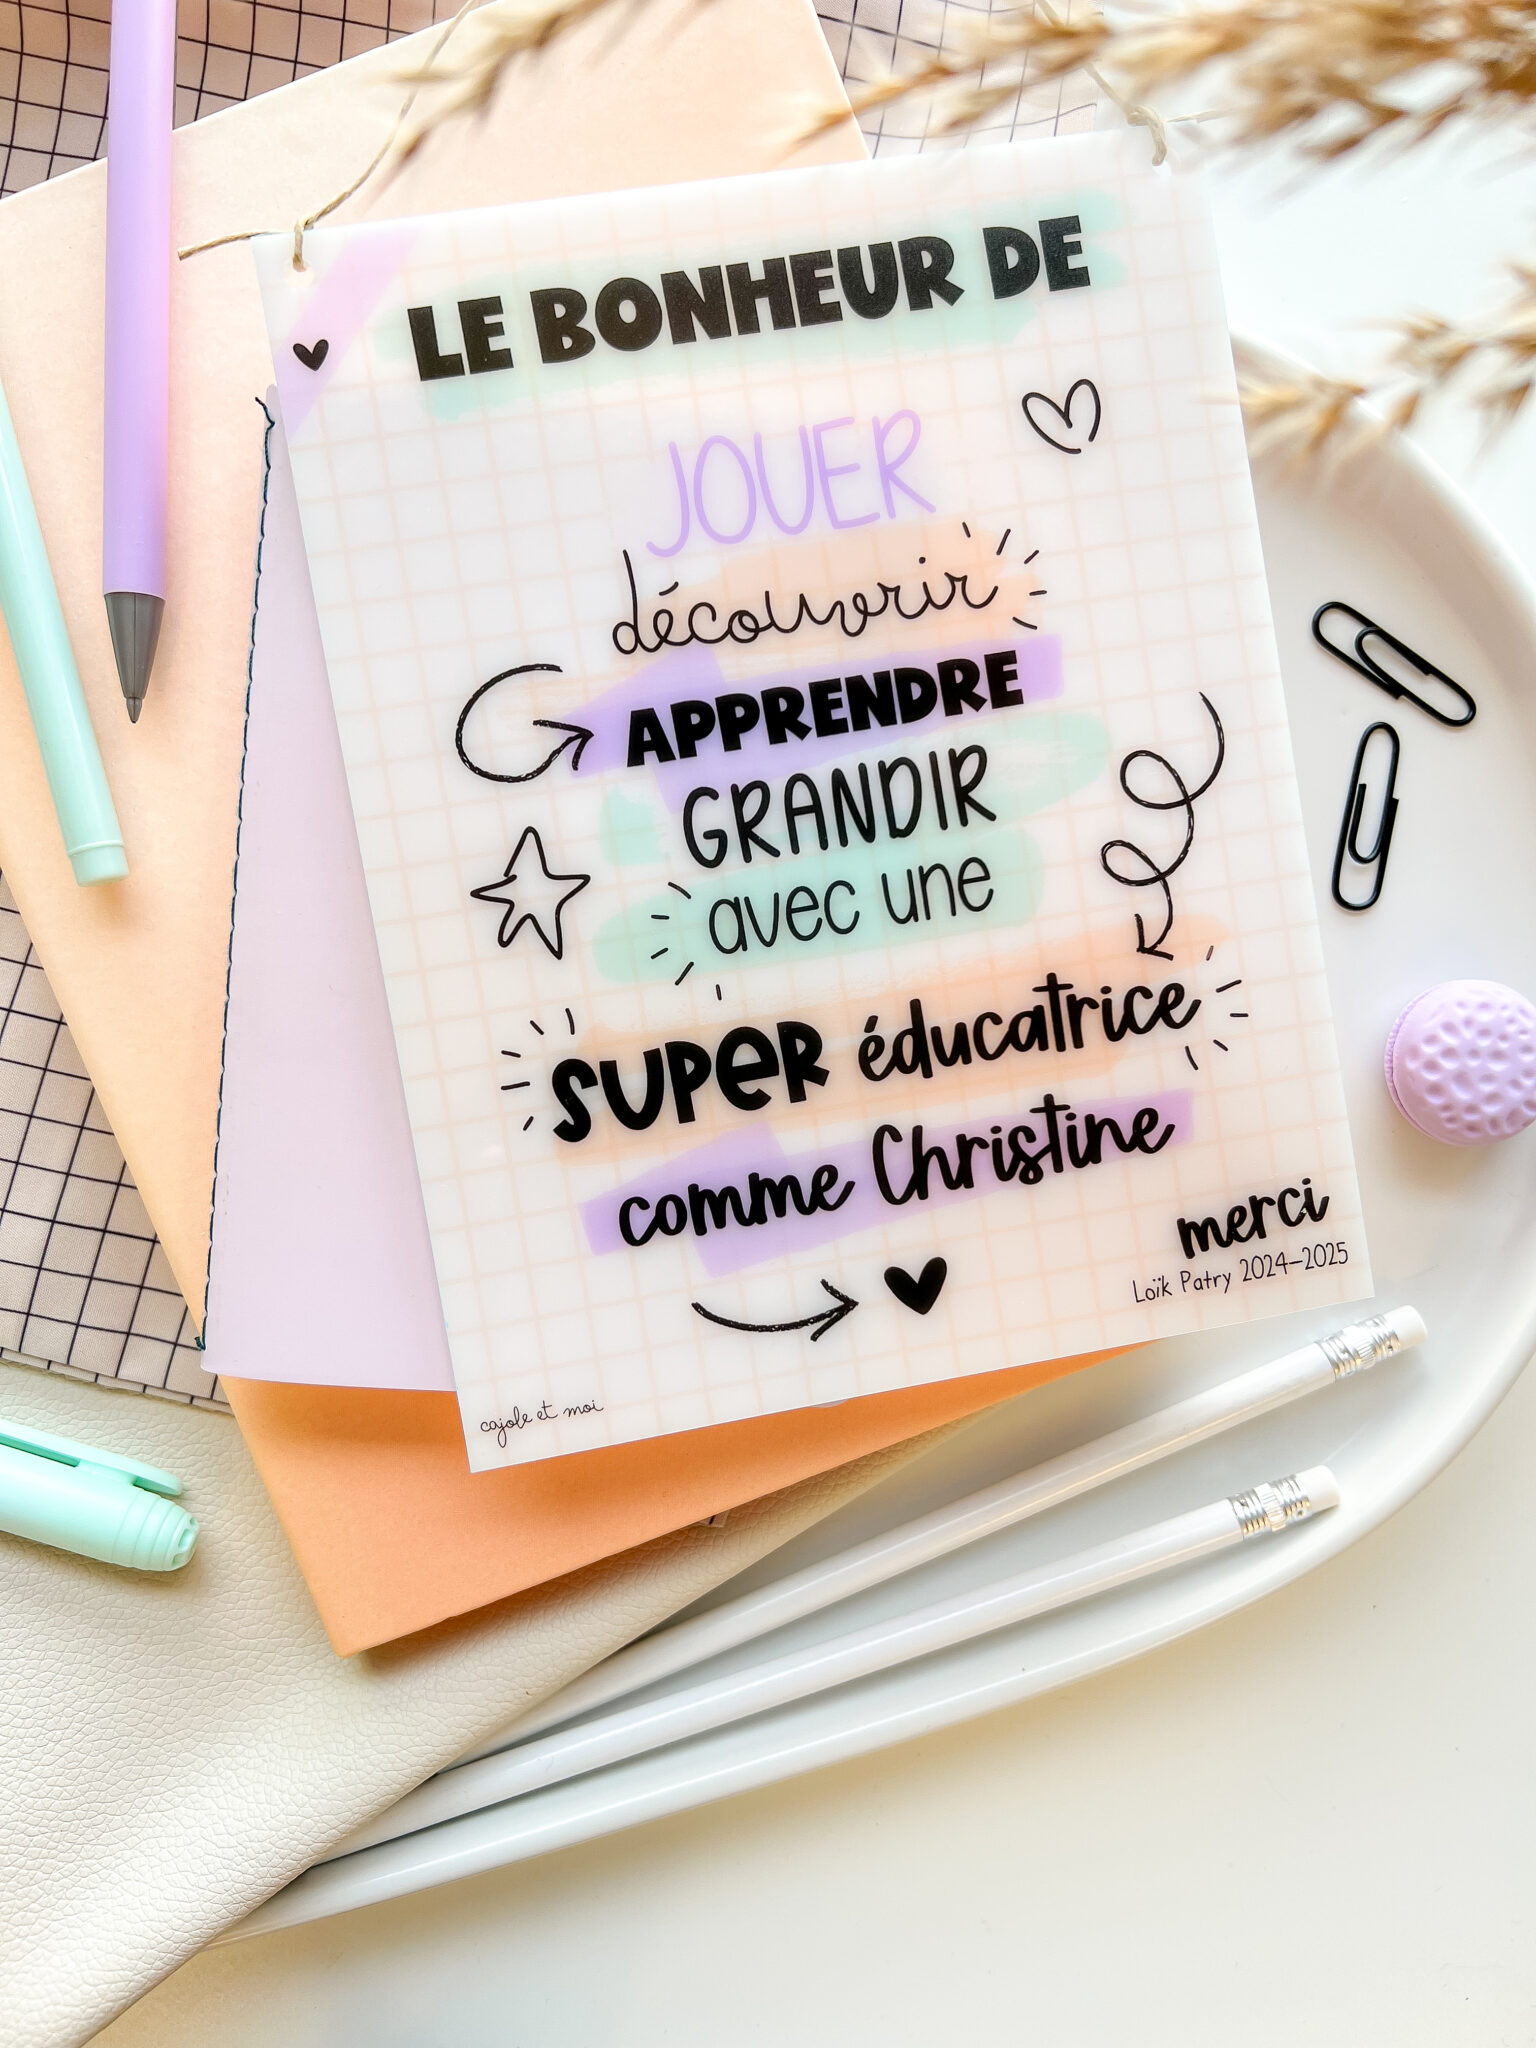 LE BONHEUR DE
JOUER
découvrir
APPRENDRE
GRANDIR
avec une
SUPER éducatrice
comme Christine
merci
Loïk Patry 2024-2025
cajole et moi